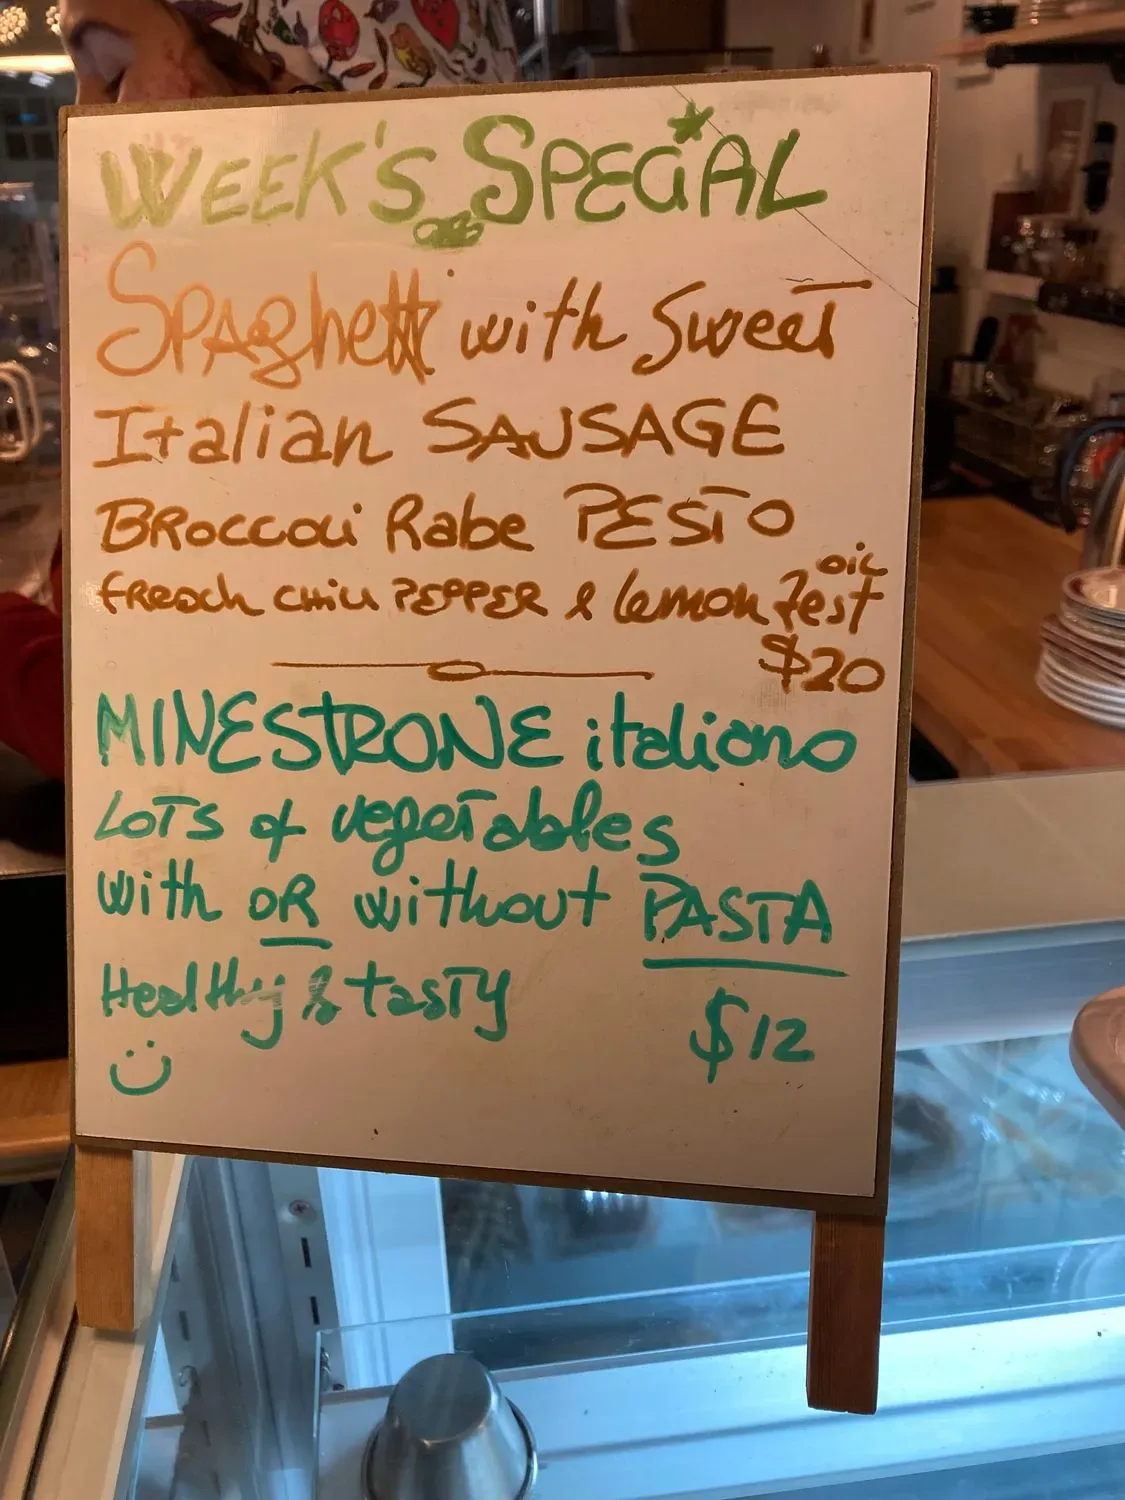 WEEK'S SPECIAL
Spaghetti with Sweet
Italian SAUSAGE
BROCCOLI Rabe PESTO
fresh CHILI PEPPER & lemon Zest oil
$20
MINESTRONE italiano
LOTS of vegetables
with OR without PASTA
Healthy & tasty
$12